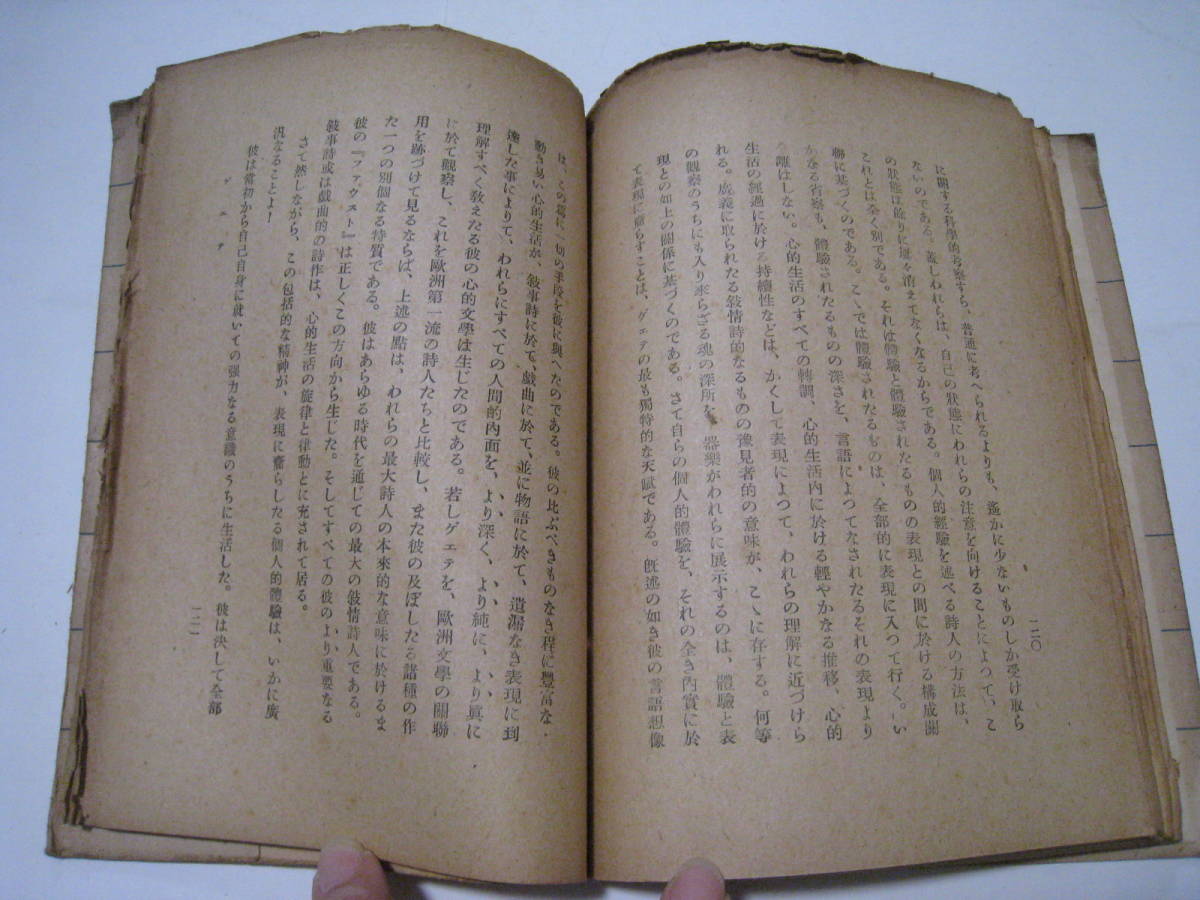 に關する科學的考察すら、普通に考へられるよりも、遙かに少ないものしか受け取ら
ないのである。蓋しわれらは、自己の狀態にわれらの注意を向けることによつて、こ
の狀態は餘りに屢々消えてなくなるからである。個人的經驗を述べる詩人の方法は、
これとは全く別である。それは體驗と體驗されたるものの表現との間に於ける構成關
聯に基づくのである。こゝでは體驗されたるものは、全部的に表現に入つて行く。い
かなる省察も、體驗されたるものの深さを、言語によつてなされたるそれの表現より
離はしない。心的生活のすべての轉調、心的生活內に於ける輕やかなる推移、心的
生活の經過に於ける持續性などは、かくして表現によつて、われらの理解に近づけら
れる。廣義に取られたる敍情詩的なるものの豫見者的の意味が、こゝに存する。何等
の觀察のうちにも入り來らざる魂の深所を、器樂がわれらに展示するのは、體驗と表
現との如上の關係に基づくのである。さて自らの個人的體驗を、それの全き內實に於
て表現に齎らすことは、ゲェテの最も獨特的な天賦である。旣述の如き彼の言語想像
一二〇
は、この爲に一切の手段を彼に與へたのである。彼の比ぶべきものなき程に豐富な、
動き易い心的生活が、敍事詩に於て、戲曲に於て、並に物語に於て、遺漏なき表現に到
達した事によりて、われらにすべての人間的內面を、より深く、より純に、より眞に
理解すべく敎えたる彼の心的文學は生じたのである。若しゲェテを、歐洲文學の關聯
に於て觀察し、これを歐洲第一流の詩人たちと比較し、また彼の及ぼしたる諸種の作
用を跡づけて見るならば、上述の點は、われらの最大詩人の本來的な意味に於けるま
た一つの別個なる特質である。彼はあらゆる時代を通じての最大の敍情詩人である。
彼の『ファウスト』は正しくこの方向から生じた。そしてすべての彼のより重要なる
敍事詩或は戲曲的の詩作は、心的生活の旋律と律動とに充されて居る。
さて然しながら、この包括的な精神が、表現に齎らしたる個人的體驗は、いかに廣
汎なることよ！
彼は當初から自己自身に就いての强力なる意識のうちに生活した。彼は決して全部
ゲェテ
一二一